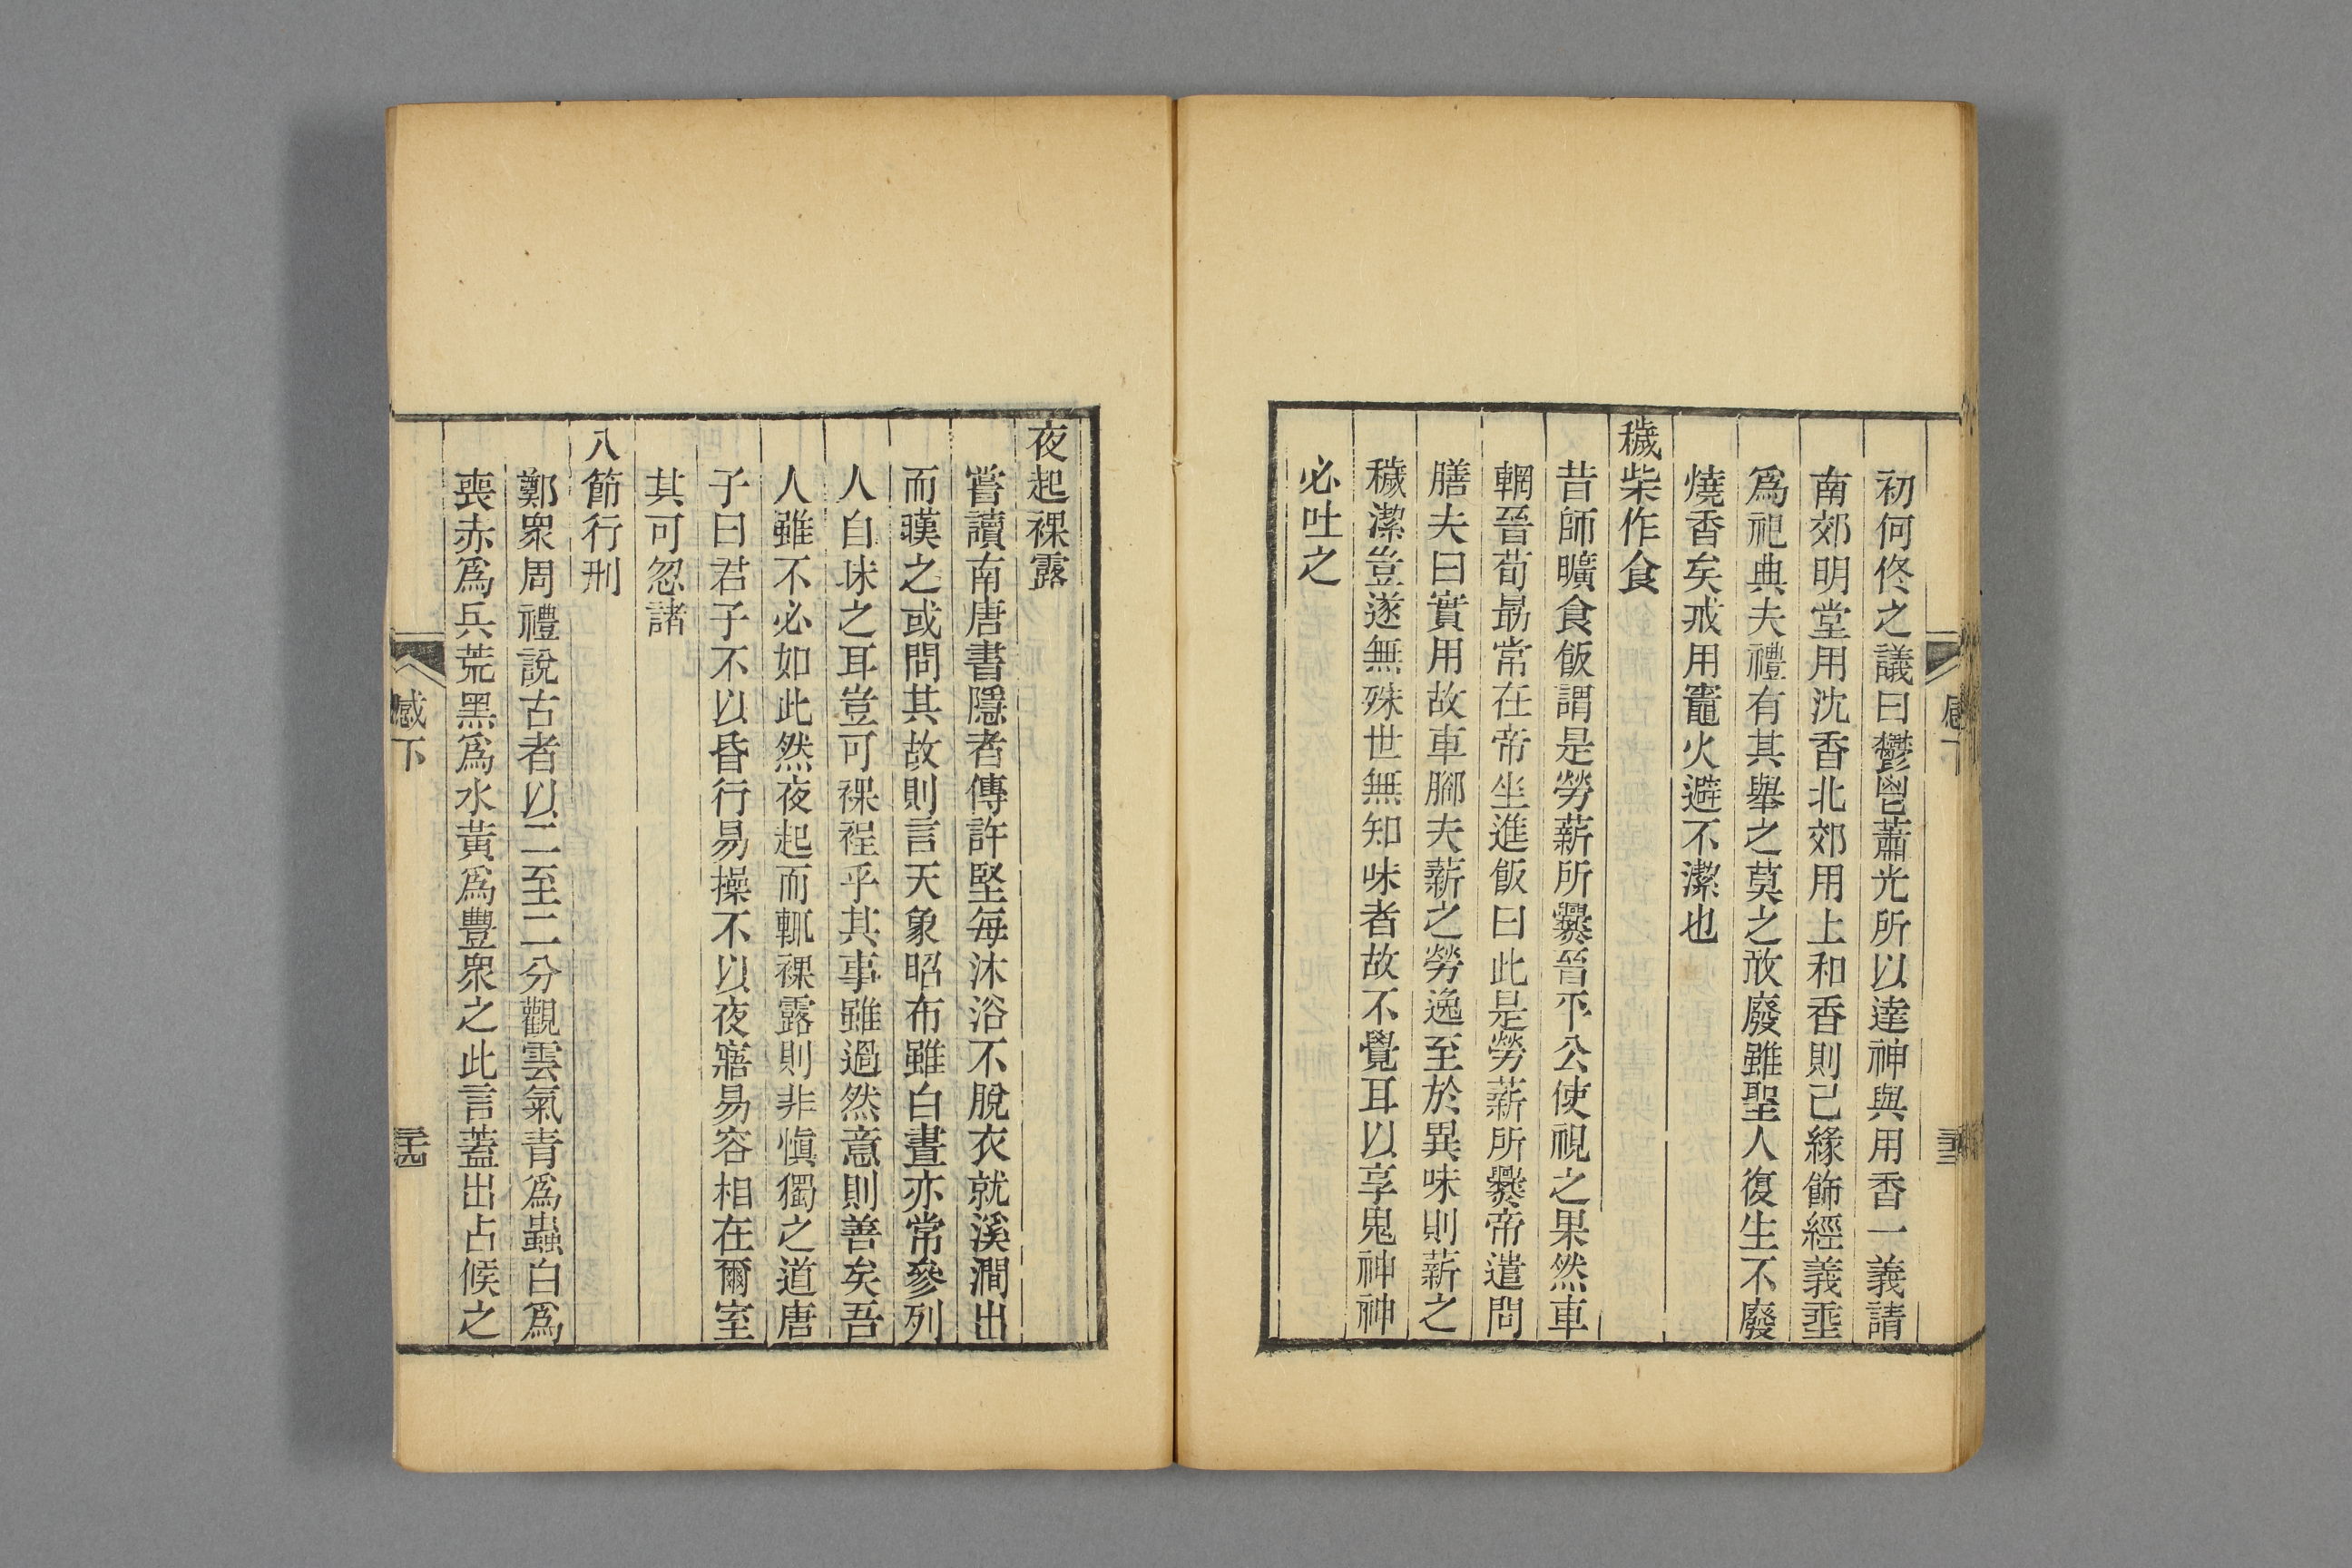 初何佟之議曰鬱鬯蕭光所以達神與用香一義請
南郊明堂用沈香北郊用上和香則已緣飾經義垂
爲祀典夫禮有其舉之莫之敢廢雖聖人復生不廢
燒香矣戒用竈火避不潔也
穢柴作食
昔師曠食飯謂是勞薪所爨晉平公使視之果然車
輞晉荀勗常在帝坐進飯曰此是勞薪所爨帝遣問
膳夫曰實用故車腳夫薪之勞逸至於異味則薪之
穢潔豈遂無殊世無知味者故不覺耳以享鬼神神
必吐之
夜起裸露
嘗讀南唐書隱者傳許堅每沐浴不脫衣就溪澗出
而暵之或問其故則言天象昭布雖白晝亦常參列
人自昧之耳豈可裸裎乎其事雖過然意則善矣吾
人雖不必如此然夜起而輒裸露則非愼獨之道唐
子曰君子不以昏行易操不以夜寤易容相在爾室
其可忽諸
八節行刑
鄭衆周禮說古者以二至二分觀雲氣青爲蟲白爲
喪赤爲兵荒黑爲水黃爲豐衆之此言蓋出占候之
感下
三十四